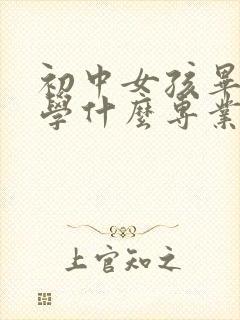 初中女孩畢
學什麼專業
上官知之